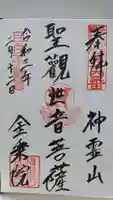 奉拝
神霊山
聖觀世音菩薩
令和二年
二月十二日
金乗院